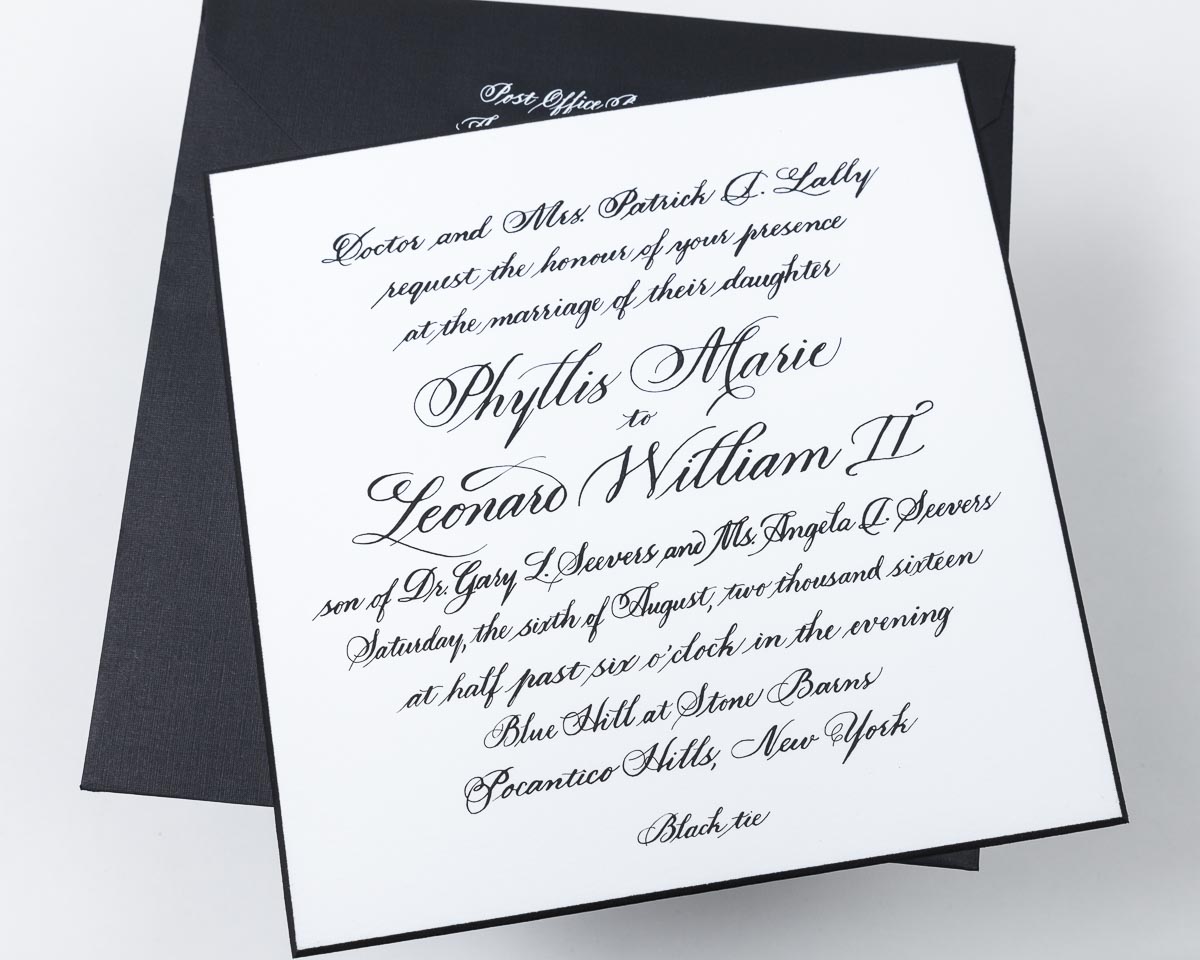 Post Office
Doctor and Mrs. Patrick J. Lally
request the honour of your presence
at the marriage of their daughter
Phyllis Marie
to
Leonard William II
son of Dr. Gary L. Seevers and Ms. Angela J. Seevers
Saturday, the sixth of August, two thousand sixteen
at half past six o'clock in the evening
Blue Hill at Stone Barns
Pocantico Hills, New York
Black tie